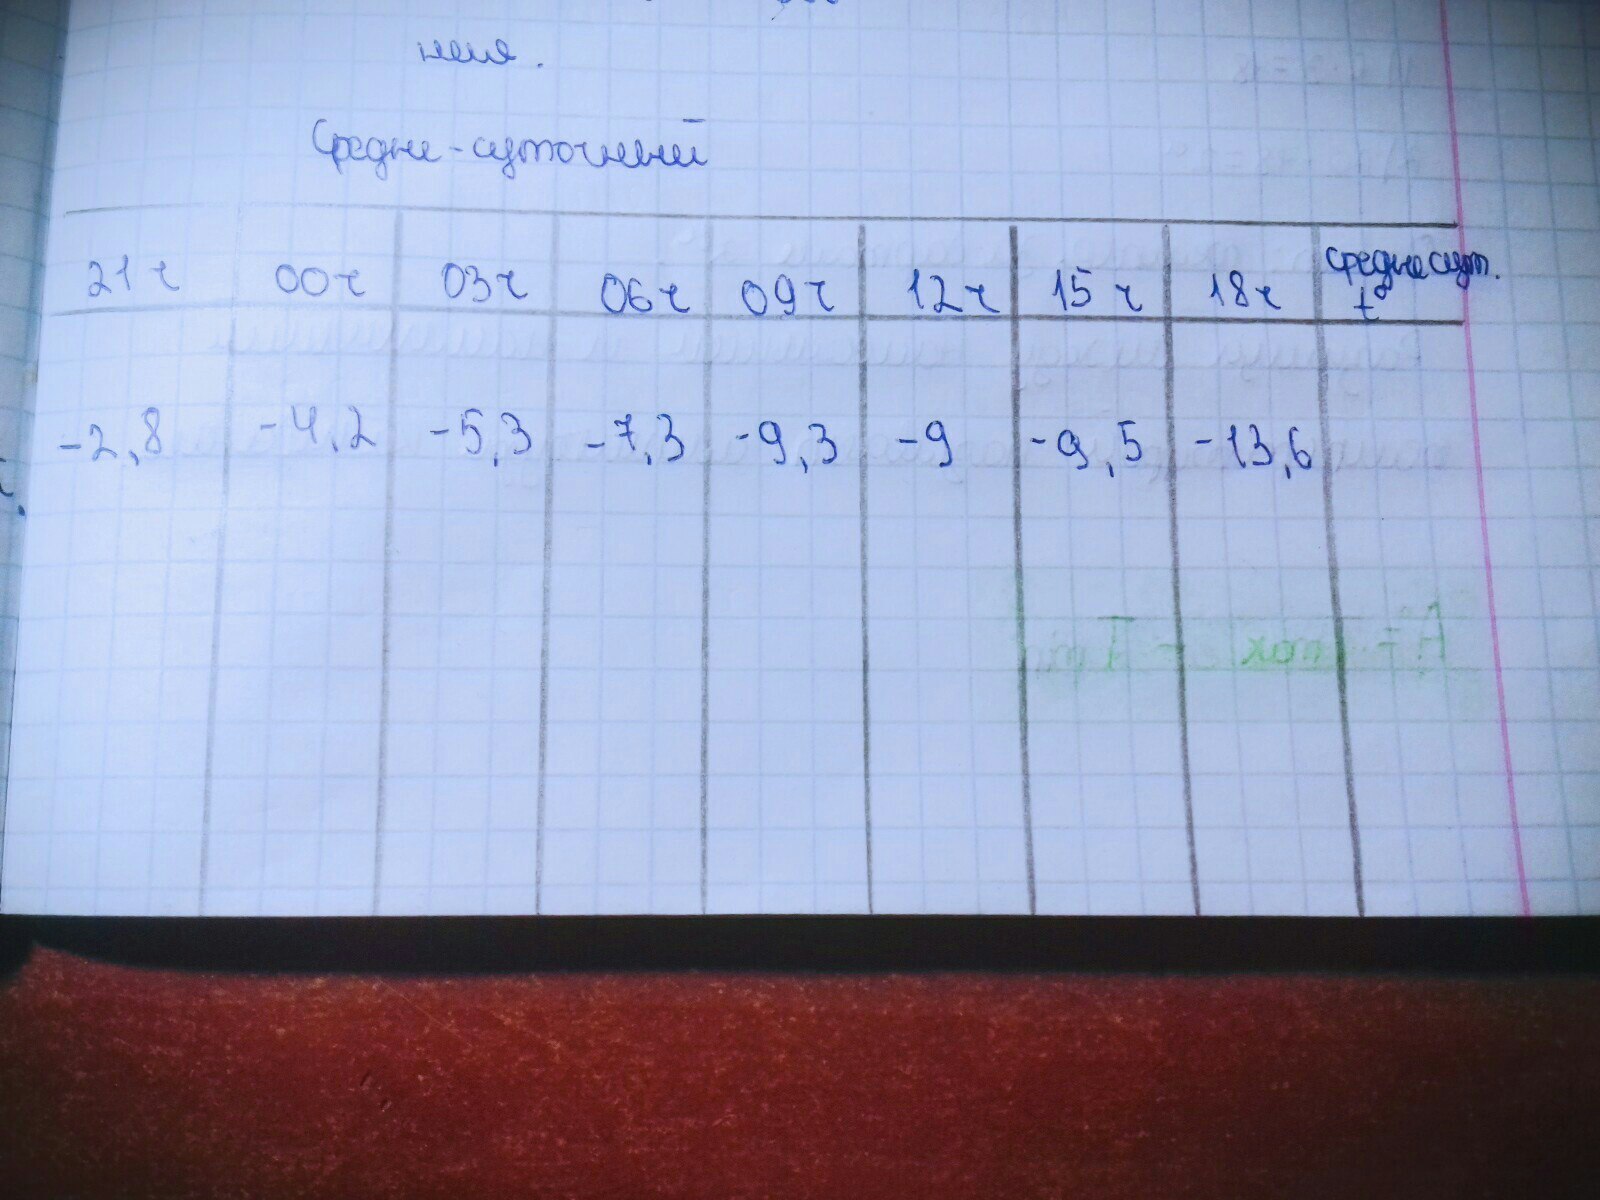 ния.
Средне-суточный
21ч 00ч 03ч 06ч 09ч 12ч 15ч 18ч среднесут. t°
-2,8 -4,2 -5,3 -7,3 -9,3 -9 -9,5 -13,6